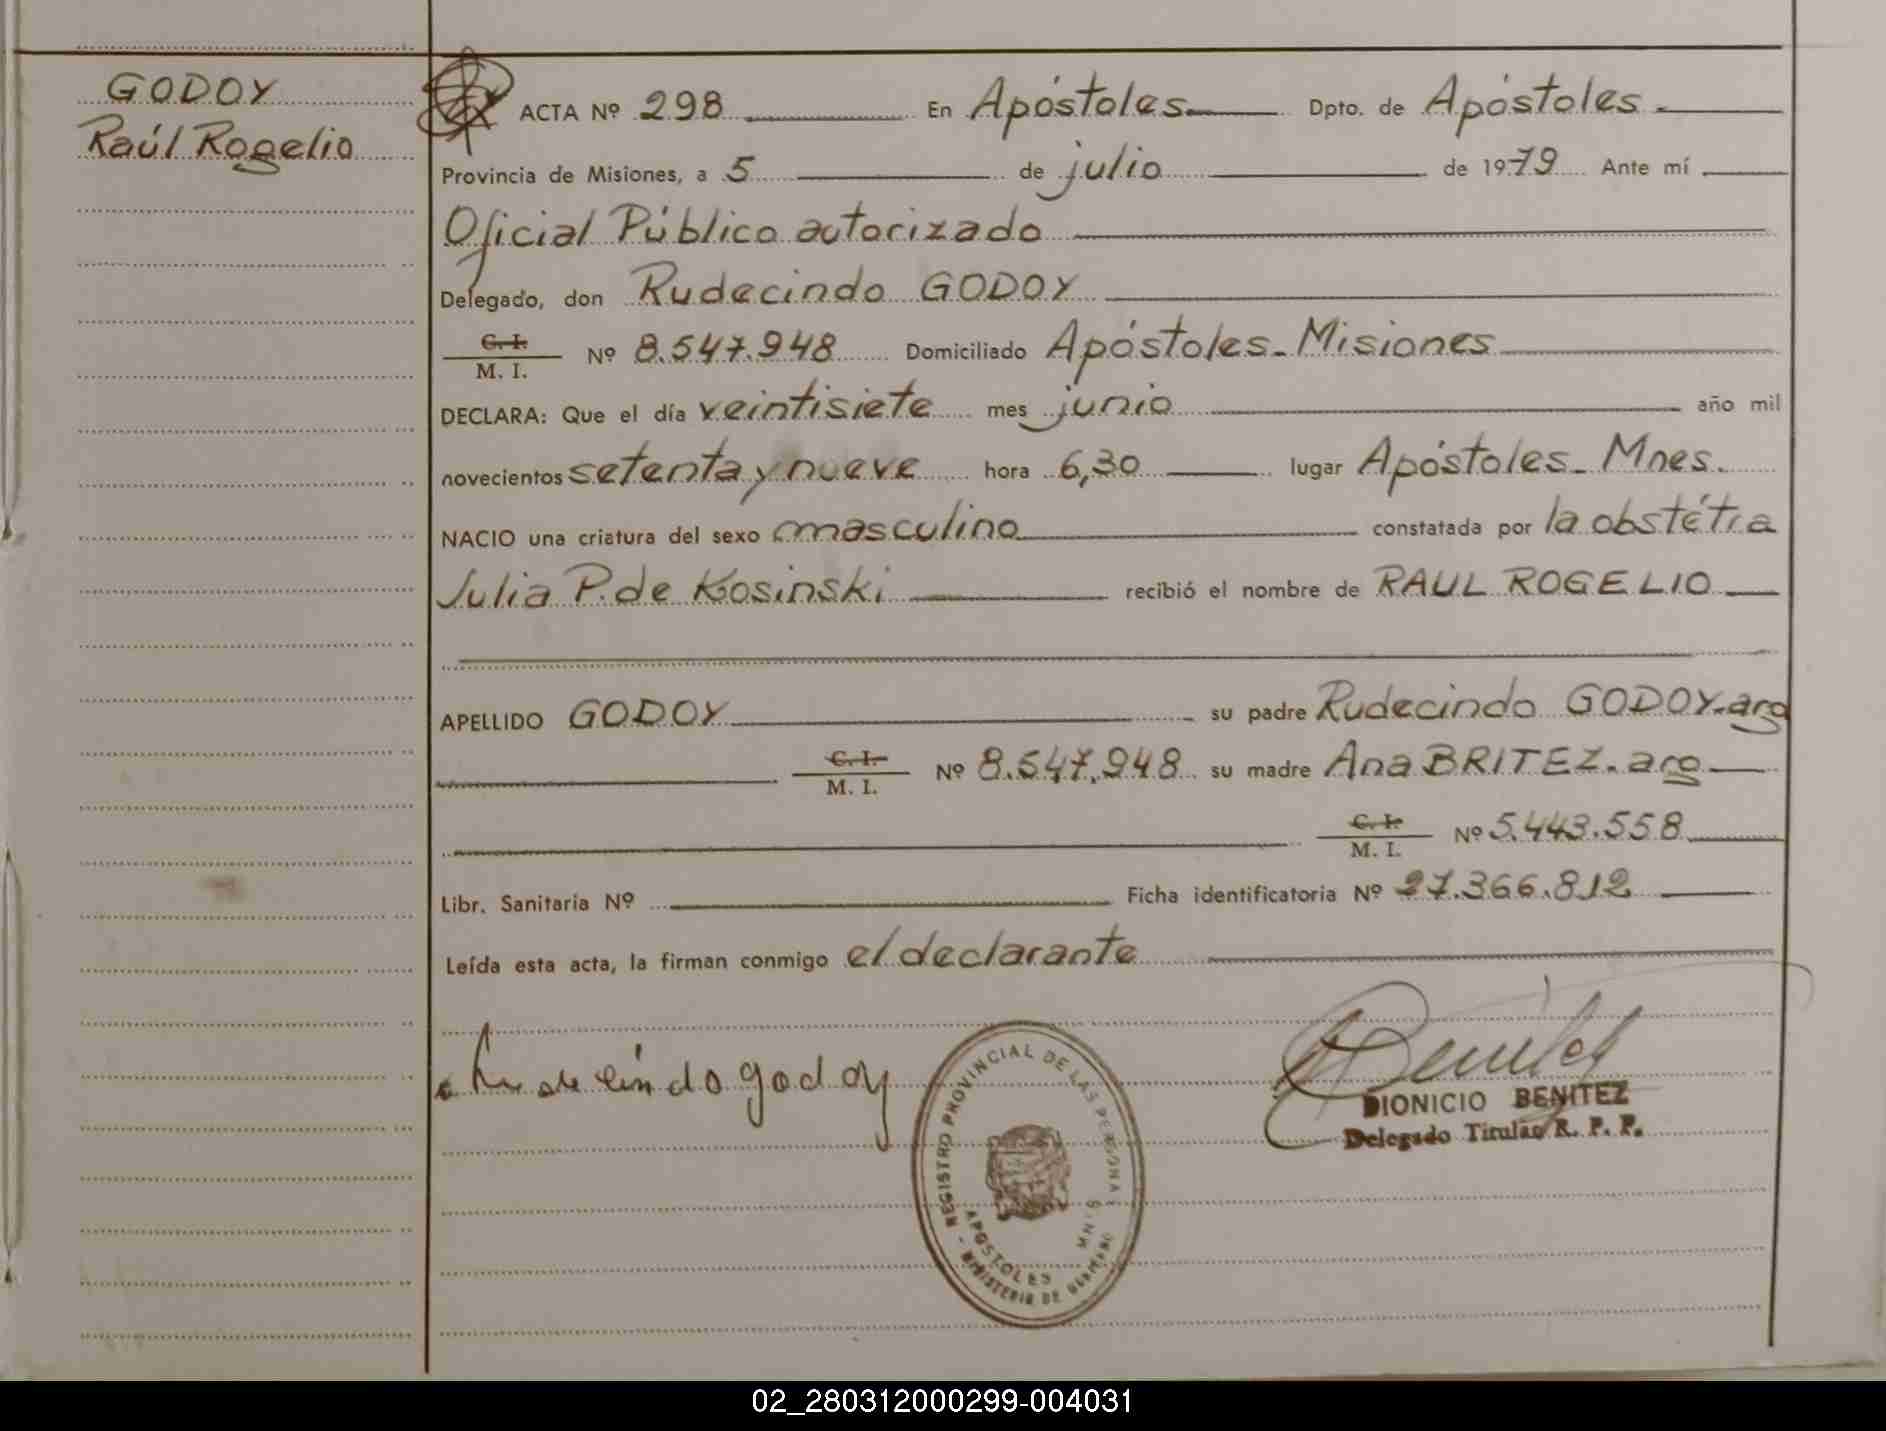 GODOY
Raúl Rogelio
ACTA Nº 298 En Apóstoles Dpto. de Apóstoles.
Provincia de Misiones, a 5 de julio de 1979 Ante mí
Oficial Público autorizado
Delegado, don Rudecindo GODOY
C. I.
M. I. Nº 8.547.948 Domiciliado Apóstoles - Misiones
DECLARA: Que el día veintisiete mes junio año mil
novecientos setenta y nueve hora 6,30 lugar Apóstoles - Mnes.
NACIO una criatura del sexo masculino constatada por la obstétra
Julia P. de Kosinski recibió el nombre de RAUL ROGELIO
APELLIDO GODOY su padre Rudecindo GODOY. arg
C. I.
M. I. Nº 8.547.948 su madre Ana BRITEZ. arg
C. I.
M. I. Nº 5.443.558
Libr. Sanitaria Nº Ficha identificatoria Nº 27.366.812
Leída esta acta, la firman conmigo el declarante
Rudecindo godoy
Benitez
DIONICIO BENITEZ
Delegado Titular R. P. P.
REGISTRO PROVINCIAL DE LAS PERSONAS
APOSTOLES MNES
MINISTERIO DE GOBIERNO
02_280312000299-004031